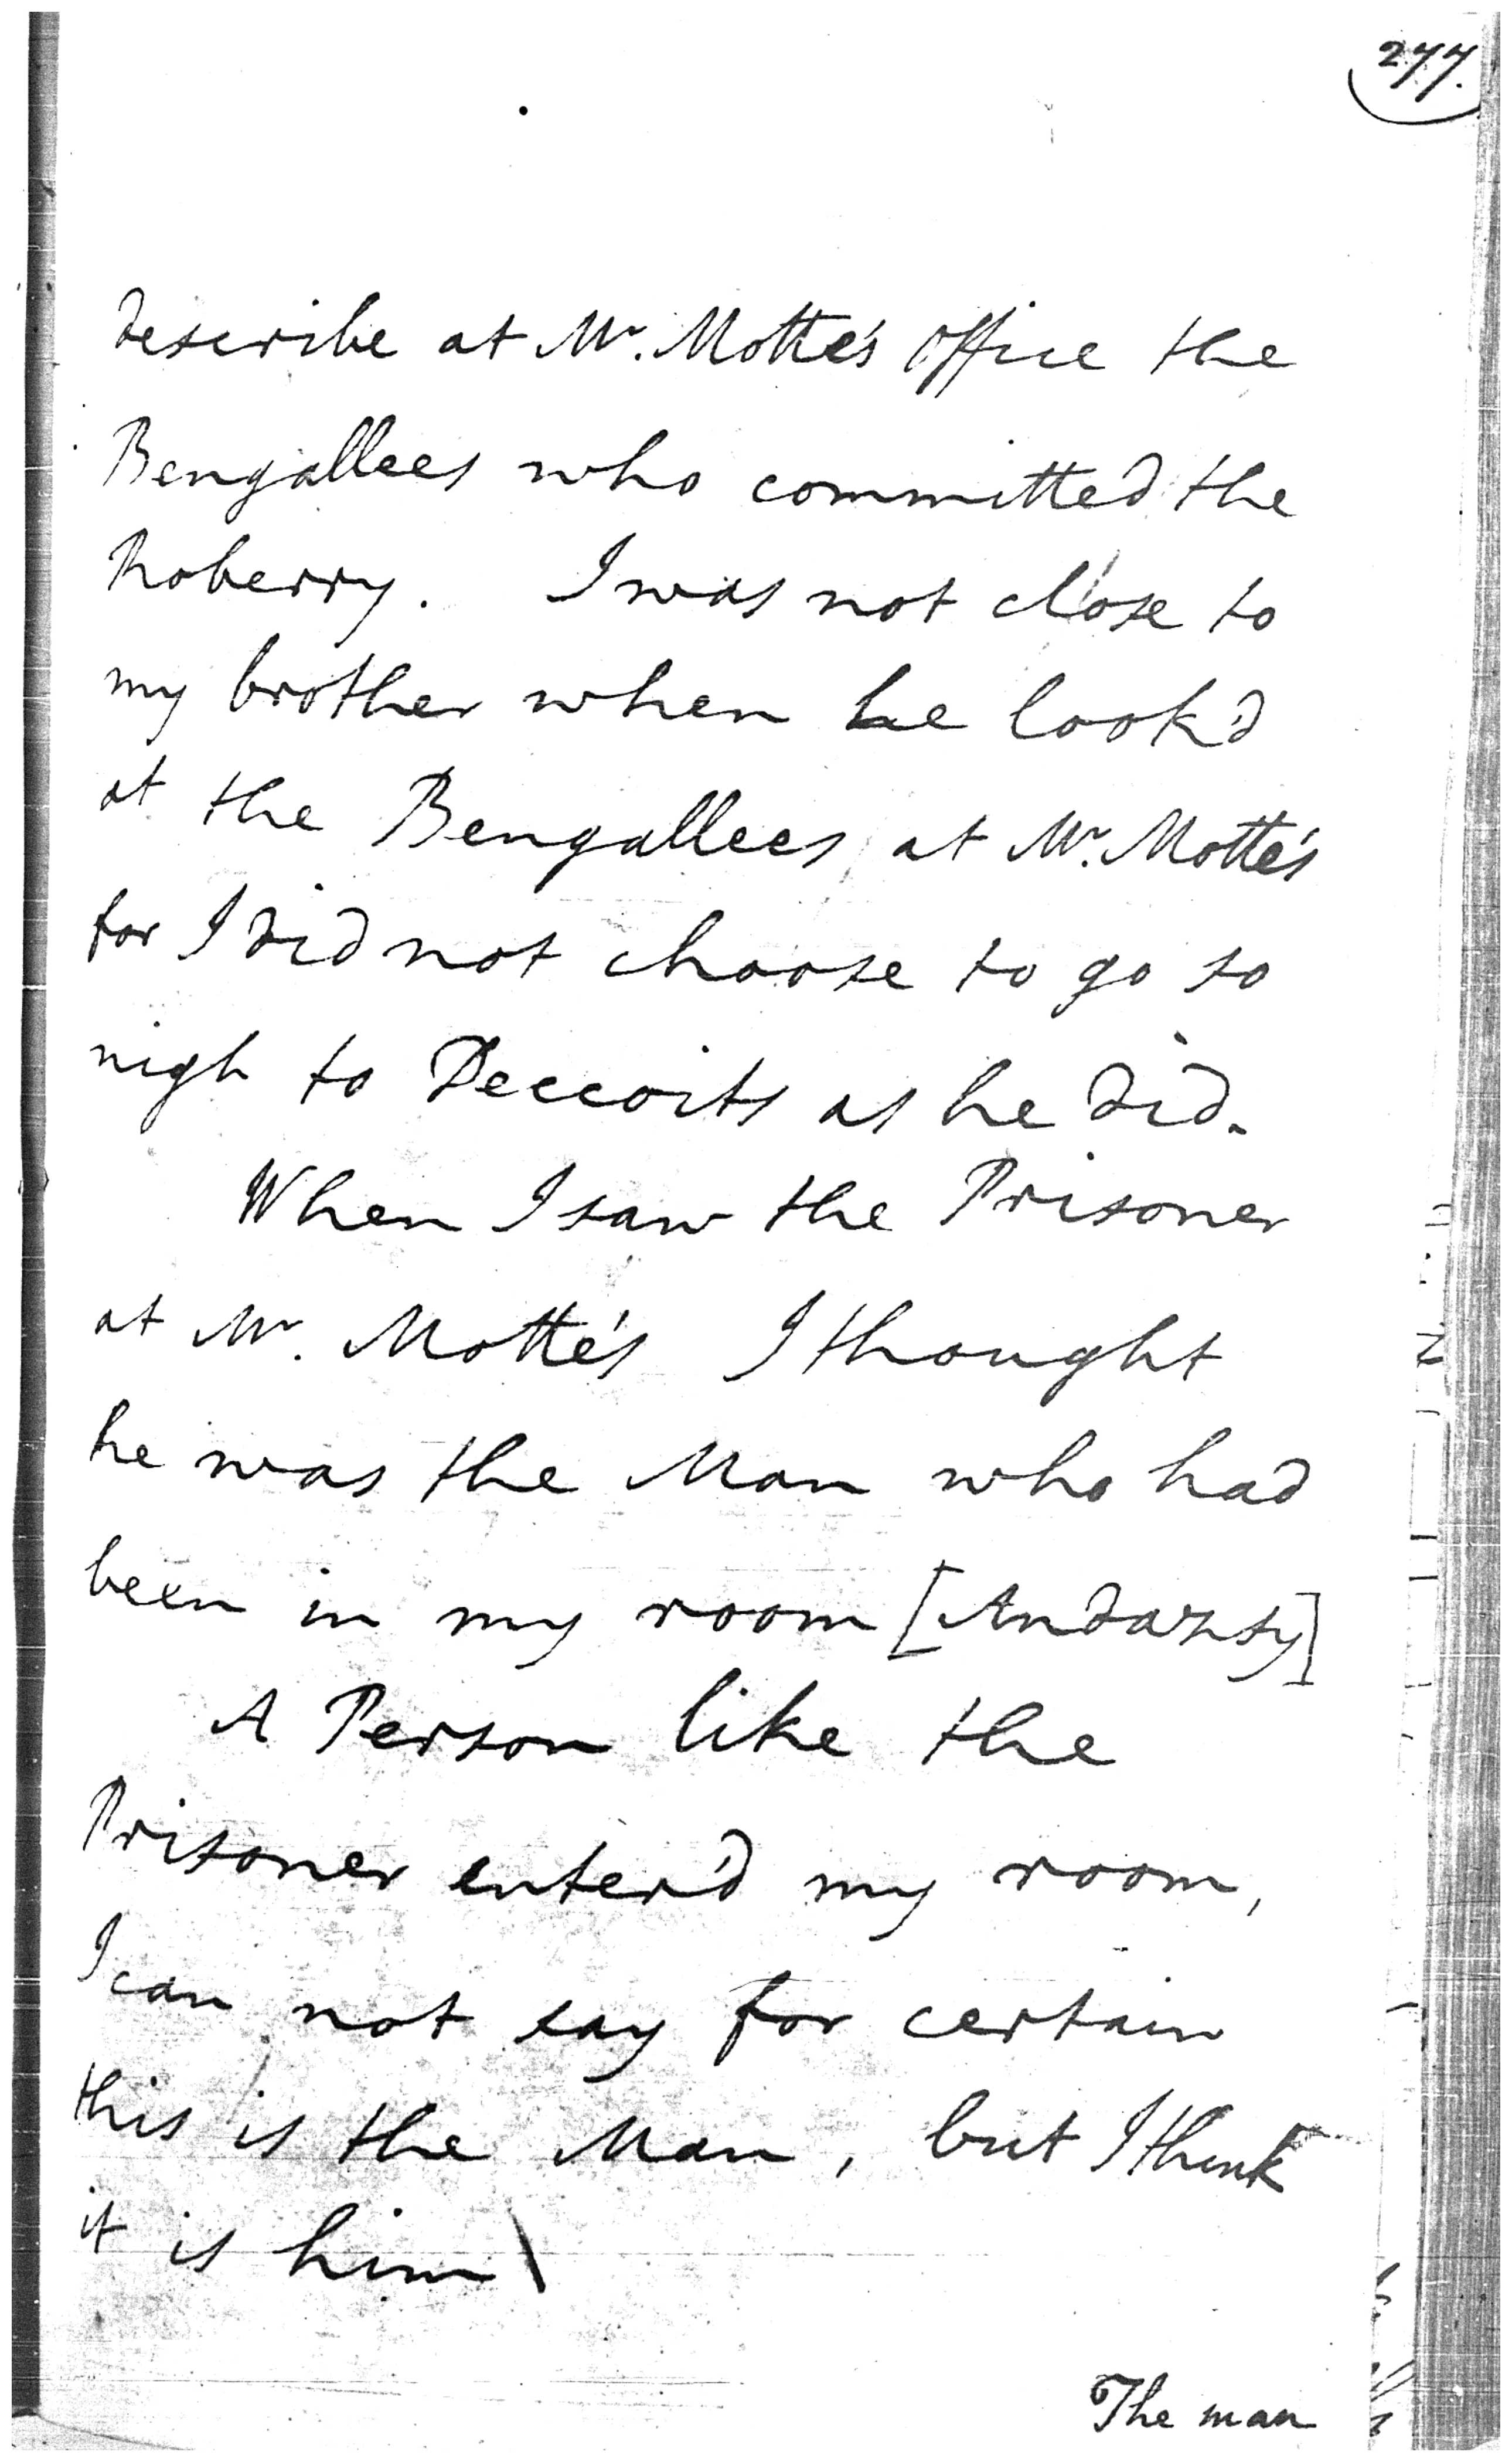 277.
describe at Mr. Motte's Office the
Bengallees who committed the
Roberry. I was not close to
my brother when he look'd
at the Bengallees at Mr. Motte's
for I did not choose to go so
nigh to Deccoits as he did.
When I saw the Prisoner
at Mr. Motte's I thought
he was the Man who had
been in my room [Andarsy]
A Person like the
Prisoner enter'd my room,
I can not say for certain
this is the Man, but I think
it is him \
The man